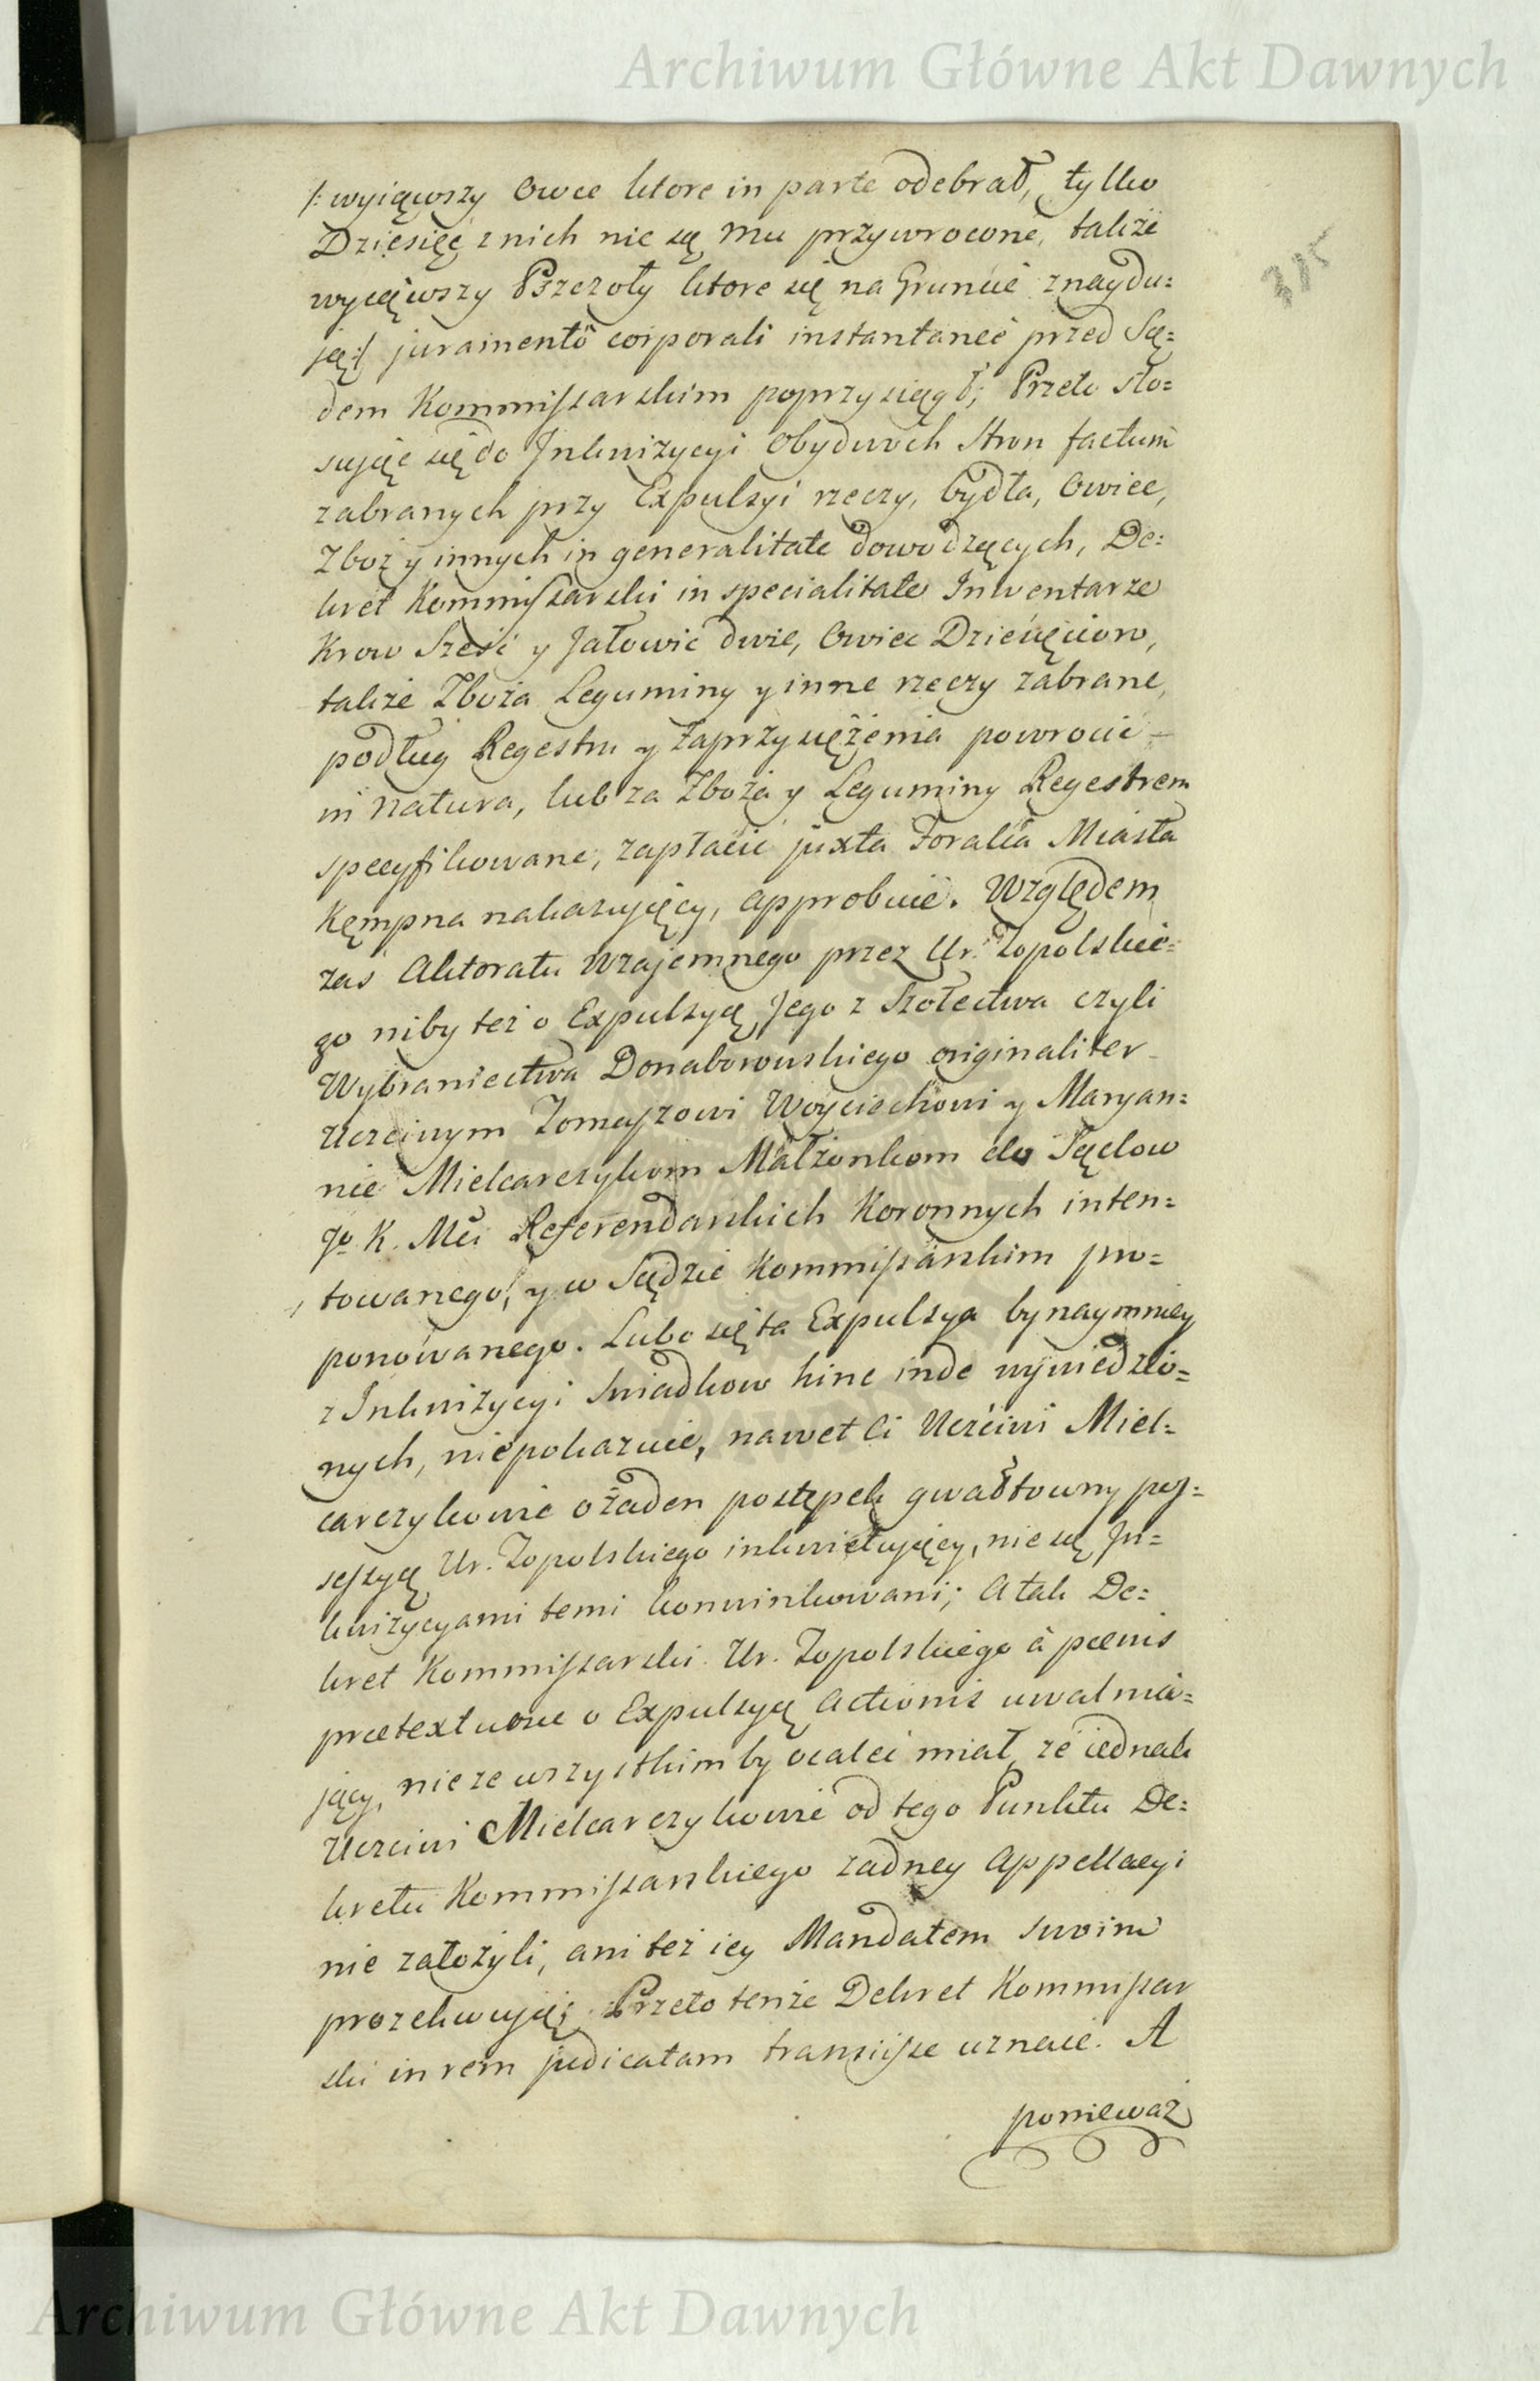 Archiwum Główne Akt Dawnych
315
/: wyiąwszy Owce ktore in parte odebrał, tylko
Dziesięć z nich nie są mu przywrocone, także
wyiąwszy Pszczoły ktore się na Gruncie znaydu=
ią :/ juramentô corporali instantaneè przed Są=
dem Kommissarskim poprzysiągł; Przeto sto=
sując się do Inkwizycyi Obydwoch Stron factum
zabranych przy Expulsyi rzeczy, bydła, Owiec,
Zboż y innych in generalitate dowodzących, De=
kret Kommissarski in specialitate Inwentarze
Krow Sześć y Jałowic dwie, Owiec Dziesięcioro,
także Zboża Leguminy y inne rzeczy zabrane,
podług Regestru y Zaprzysiężenia powrocić
in natura, lub za Zboża y Leguminy Regestrem
specyfikowane, zapłacić juxta Foralia Miasta
Kępna nakazujący, approbuie. Względem
zaś Aktoratu wzajemnego przez Ur. Topolskie=
go niby też o Expulsyą Jego z Szołectwa czyli
Wybraniectwa Donaborowskiego originaliter
Uczciwym Tomaszowi Woyciechowi y Maryan=
nie Mielcarczykom Małżonkom do Sądow
Jº K. Mci Referendarskich Koronnych inten=
towanego, y w Sądzie Kommissarskim pro=
ponowanego. Lubo się ta Expulsya bynaymniey
z Inkwizycyi Swiadkow hinc inde wywiedzio=
nych, niepokazuie, nawet Ci Uczciwi Miel=
carczykowie o żaden postępek gwałtowny pos=
sessyą Ur. Topolskiego inkwietujący, nie są In=
kwizycyami temi konwinkowani; A tak De=
kret Kommissarski Ur. Topolskiego à pœnis
prætextuosæ o Expulsyą Actionis uwalnia=
jący, nie ze wszystkim by ocaleć miał, że iednak
Uczciwi Mielcarczykowie od tego Punktu De=
kretu Kommissarskiego żadney Appellacyi
nie założyli, ani też iey Mandatem swoim
prozekwują; Przeto tenże Dekret Kommissar
ski in rem judicatam transiisse uznaie. A
ponieważ
Archiwum Główne Akt Dawnych